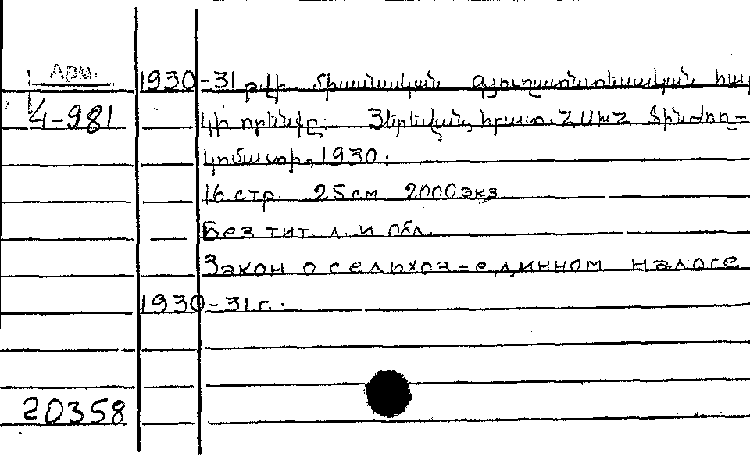 Арм.
4-981
1930-31 թվի միասնական գյուղատնտեսական հար
կի որենքը: Յերեվան, հրատ. ՀՍԽՀ Ֆինժող-
կոմատի, 1930:
16 стр. 25 см 2000 экз.
Без тит. л. и обл.
Закон о сельхоз-единном налоге
1930-31 г.
20358